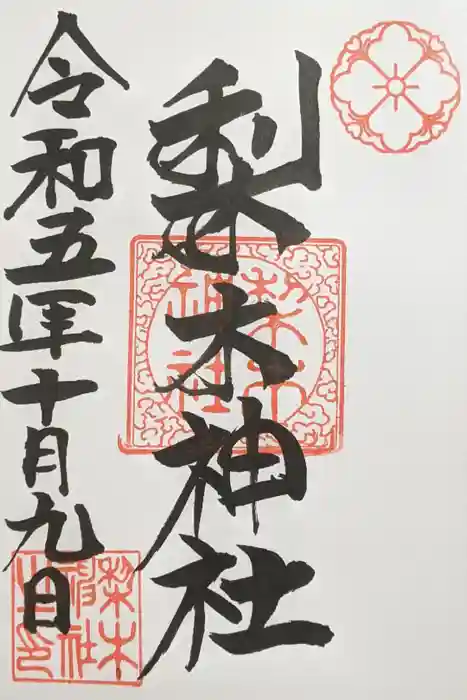 梨木神社
令和五年十月九日
梨木神社
梨木神社之印